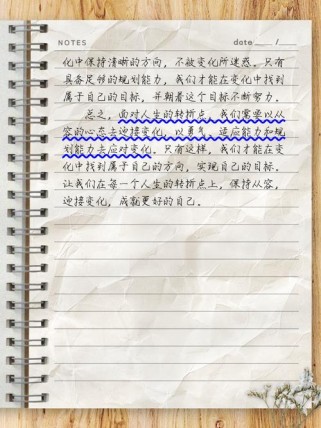 NOTES date ___ / ___
化中保持清晰的方向，不被变化所迷惑。只有
具备足够的规划能力，我们才能在变化中找到
属于自己的目标，并朝着这个目标不断努力。
总之，面对人生的转折点，我们需要以从
容的心态去迎接变化，以勇气、适应能力和规
划能力去应对变化。只有这样，我们才能在变
化中找到属于自己的方向，实现自己的目标。
让我们在每一个人生的转折点上，保持从容，
迎接变化，成就更好的自己。